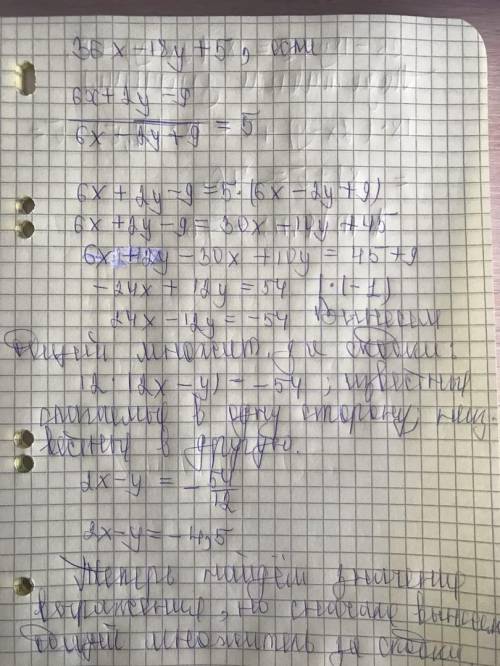 36x - 18y + 5, если
6x + 2y - 9
6x - 2y + 9 = 5
6x + 2y - 9 = 5·(6x - 2y + 9)
6x + 2y - 9 = 30x - 10y + 45
6x + 2y - 30x + 10y = 45 + 9
-24x + 12y = 54 |·(-1)
24x - 12y = -54 Вынесем
общий множит. за скобки.
12·(2x - y) = -54, известные
в одну сторону, неиз-
вестные в другую.
2x - y = - 54
12
2x - y = -4,5
Теперь найдём значение
выражения, но сначала вынесем
общий множитель за скобки